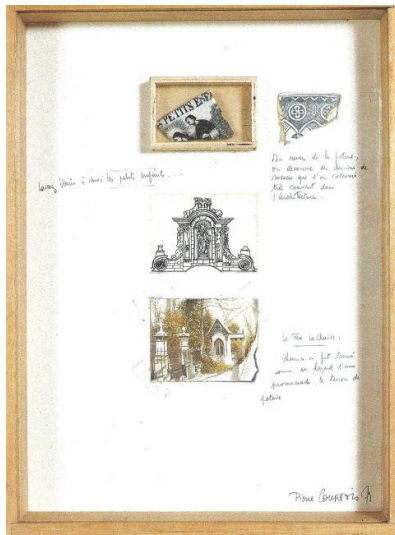 PETITS ENF
laissez venir à moi les petits enfants...
Au revers de la poterie,
on découvre des dessins de
que l'on retrouve
très souvent dans
l'Architecture.
Le Père Lachaise.
Chemin où fut trouvé
au hasard d'une
promenade le tesson de
poterie
Pierre Courtois